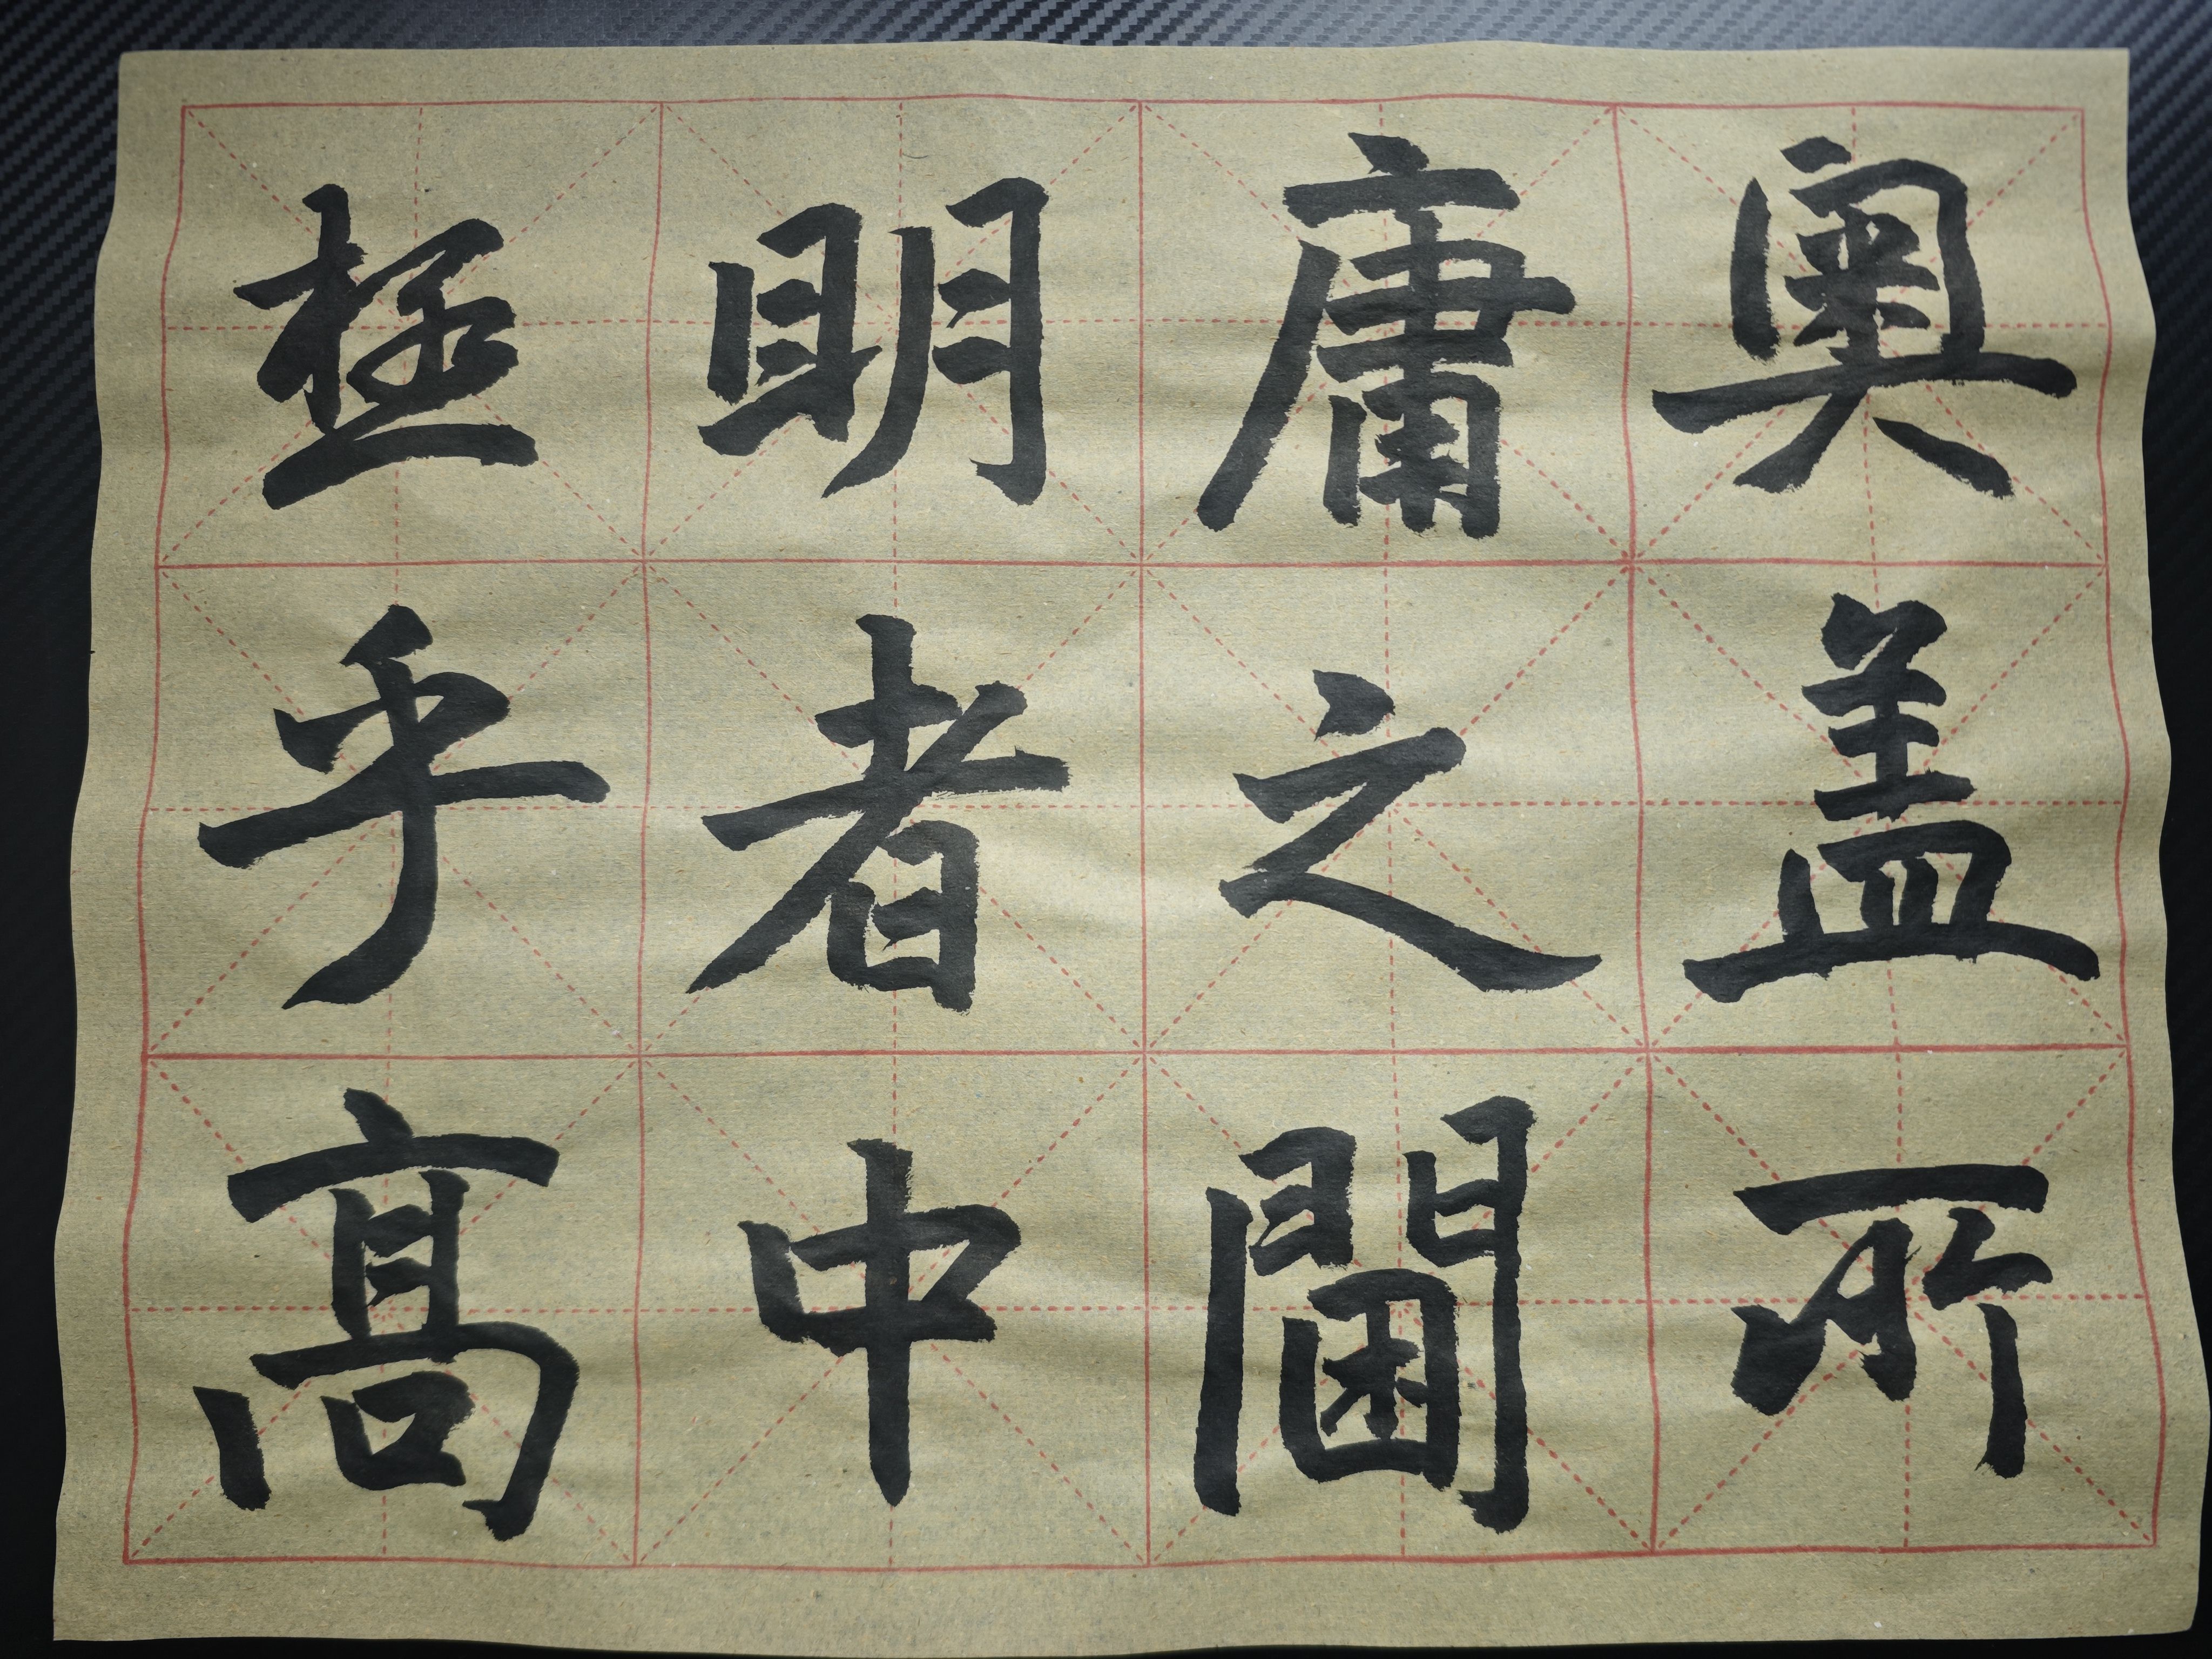 極乎高
明者中
庸之閫
奥盖所